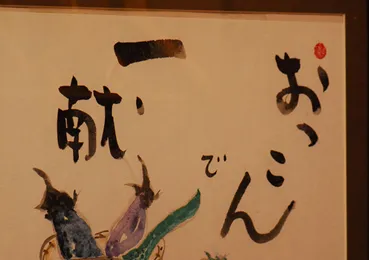 おこん
で
一献